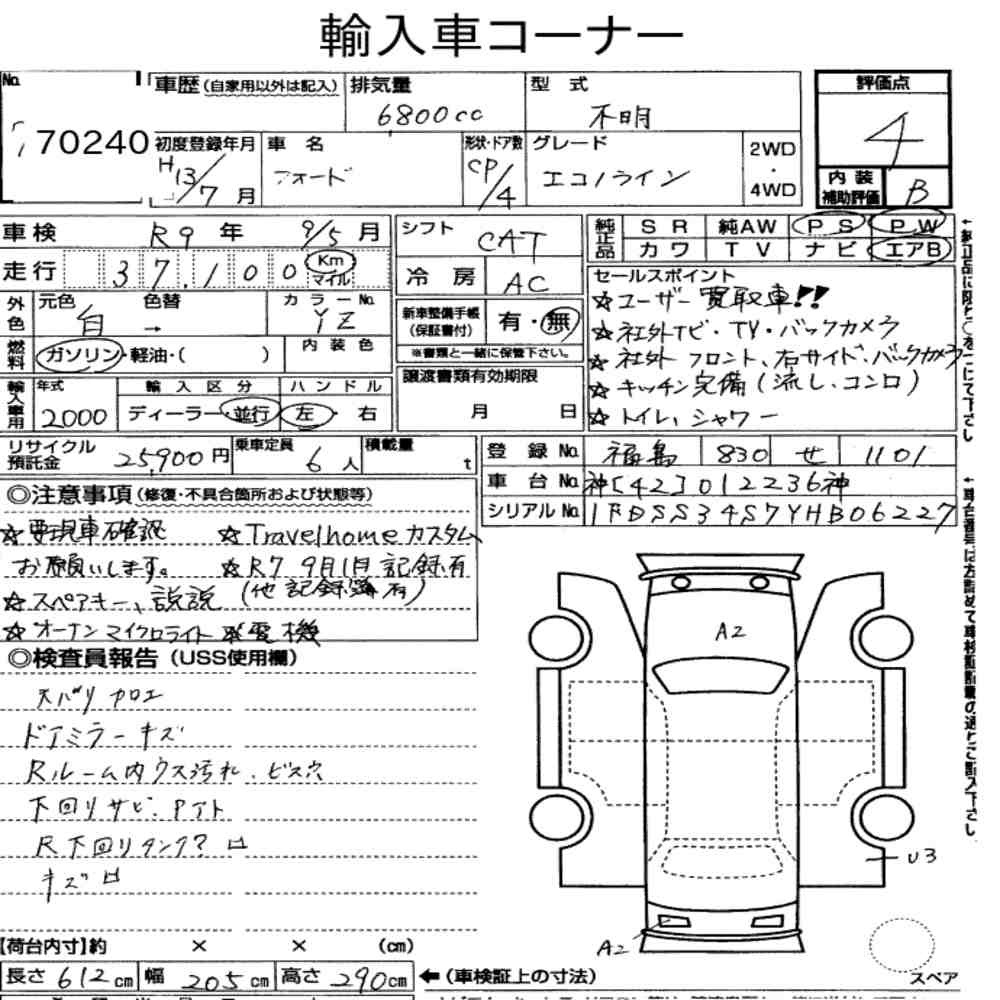 輸入車コーナー
No. 70240
車歴(自家用以外は記入) 排気量 6800cc 型式 不明
評価点 4
初度登録年月 H13/7月 車名 フォード 形状・ドア数 CP/4 グレード エコノライン 2WD・4WD
内装補助評価 B
車検 R9年 9/5月 シフト CAT 純正品 SR 純AW PS PW
走行 37,100 Km マイル 冷房 AC カワ TV ナビ エアB
外色 元色 白 色替 → カラーNo. YZ 内装色
新車整備手帳(保証書付) 有・無
※書類と一緒に保管下さい。
燃料 ガソリン・軽油・( )
セールスポイント
☆ユーザー買取車!!
☆社外ナビ・TV・バックカメラ
☆社外フロント、右サイド、バックカメラ
☆キッチン完備(流し、コンロ)
☆トイレ、シャワー
輸入車用 年式 2000 輸入区分 ディーラー・並行 ハンドル 左・右
譲渡書類有効期限 月 日
リサイクル預託金 25,900円 乗車定員 6人 積載量 t
登録No. 福島 830 せ 1101
車台No. 神[42]012236神
シリアルNo. 1FDSS34S7YHB06227
◎注意事項(修復・不具合箇所および状態等)
☆要現車確認 ☆Travelhomeカスタム
お願いします。 ☆R7 9月1日 記録有
☆スペアキー、説 (他記録簿有)
☆オーナン マイクロライト 発電機
◎検査員報告(USS使用欄)
スバリ カロエ
ドアミラーキズ
Rルーム内ウス汚れ、ビス穴
下回りサビ、Pアト
R下回りタンク? 凹
キズ凹
A2
U3
A2
スペア
【荷台内寸】約 × × (cm)
長さ 612cm 幅 205cm 高さ 290cm ←(車検証上の寸法)
↑純正品に限り○をつけて下さい
↑車台番号は左詰めで車検証記載の通りご記入下さい